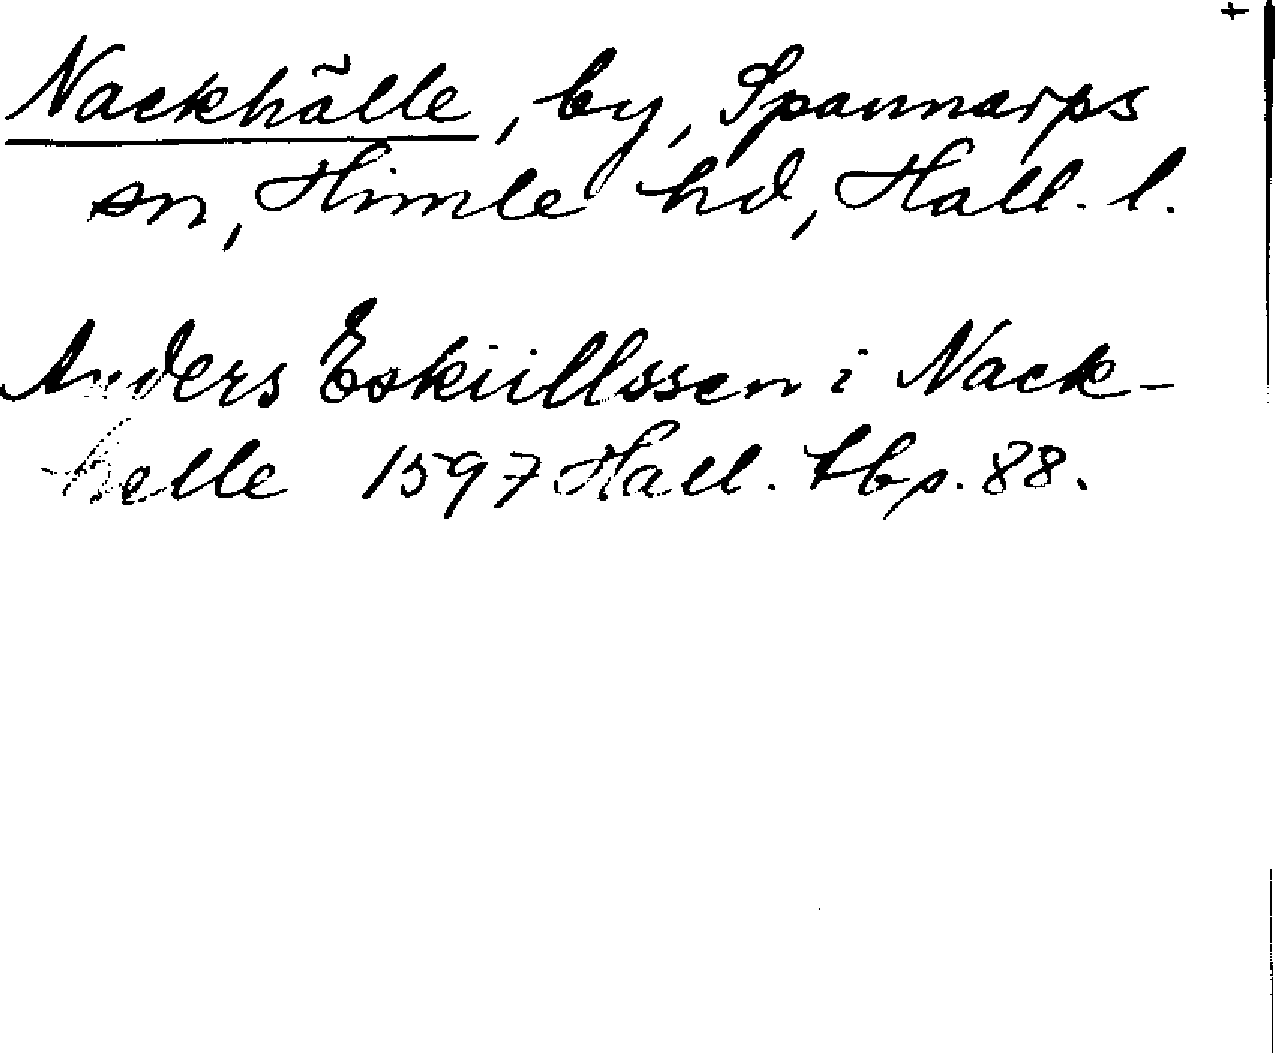 Nackhälle, by, Spannarps
sn, Himle hd, Hall. l.
Anders Eskiillssen i Nack-
helle 1597 Hall. tbs. 88.